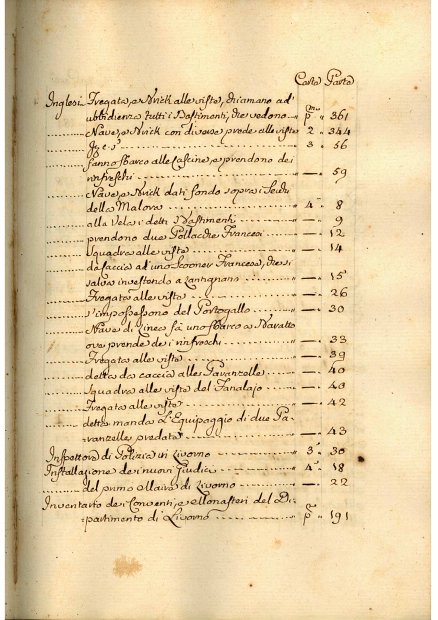 Carta Parte
Inglesi. Fregata, e Brick alle viste, chiamano ad'
ubbidienza tutti i Bastimenti, che vedono. p.mo 361
Nave, e Brick con diverse prede alle viste 2. 344
3. 56
fanno sbarco alle Cascine, e prendono dei
rinfreschi — 59
Nave, e Brick dati fondo sopra i
della Malora 4. 8
alla Vela i detti Bastimenti — 9
prendono due Pollacche Francesi — 12
Squadra alle viste — 14
da caccia ad' uno Scooner Francese, che si
salva investendo a Antignano — 15
Fregata alle viste — 26
s'impossessono del Portogallo — 30
Nave di Linea fà uno sbarco a
ove prende dei rinfreschi — 33
Fregata alle viste — 39
detta da caccia alle Paranzelle — 40
Squadra alle viste del Fanalajo — 40
Fregata alle viste — 42
detta manda l'Equipaggio di due Pa-
ranzelle predate — 43
Inspettore di Polizia in Livorno 3. 30
Installazione dei nuovi Giudici 4. 18
del primo Maire di Livorno — 22
Inventario dei Conventi, e Monasteri del Di-
partimento di Livorno p. 191